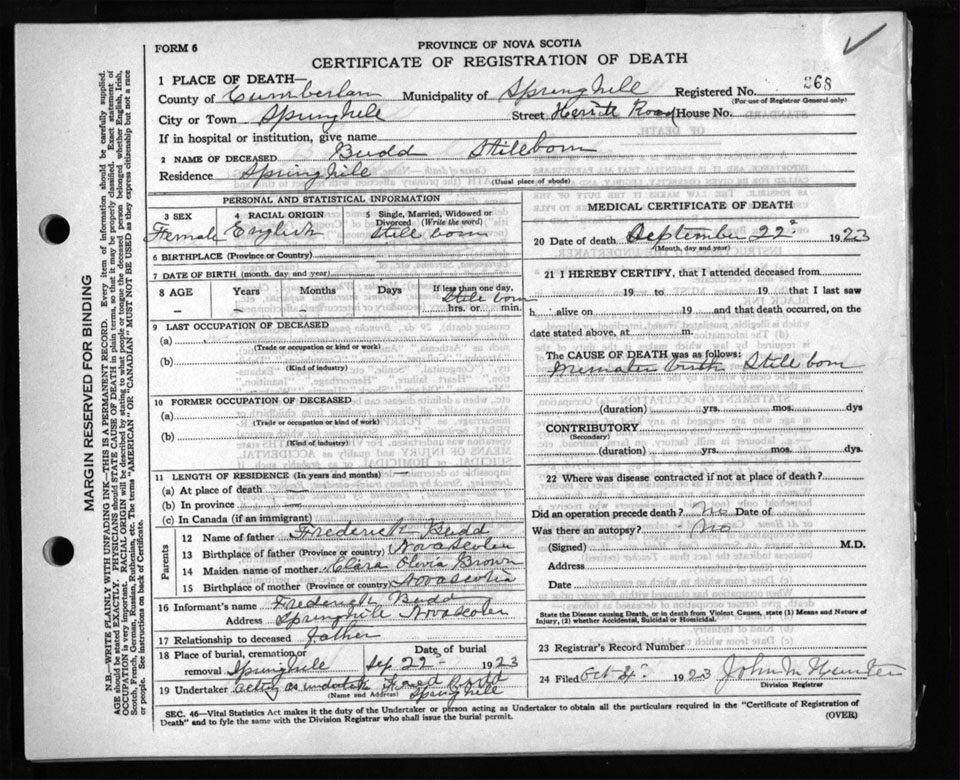 FORM 6
PROVINCE OF NOVA SCOTIA
CERTIFICATE OF REGISTRATION OF DEATH
1 PLACE OF DEATH—
County of Cumberlan Municipality of Springhill Registered No. 268
(For use of Registrar General only)
City or Town Springhill Street Herritt Road House No.
If in hospital or institution, give name
2 NAME OF DECEASED Budd Stillborn
Residence Springhill
(Usual place of abode)
PERSONAL AND STATISTICAL INFORMATION
3 SEX 4 RACIAL ORIGIN 5 Single, Married, Widowed or Divorced (Write the word)
Female English Still born
6 BIRTHPLACE (Province or Country)
7 DATE OF BIRTH (month, day and year)
8 AGE Years Months Days If less than one day,
– – Still born
hrs. or min.
9 LAST OCCUPATION OF DECEASED
(a)
(Trade or occupation or kind of work)
(b)
(Kind of industry)
10 FORMER OCCUPATION OF DECEASED
(a)
(Trade or occupation or kind of work)
(b)
(Kind of industry)
11 LENGTH OF RESIDENCE (In years and months) —
(a) At place of death —
(b) In province —
(c) In Canada (if an immigrant)
Parents
12 Name of father Frederick Budd
13 Birthplace of father (Province or country) Nova Scotia
14 Maiden name of mother Clara Olivia Brown
15 Birthplace of mother (Province or country) Nova Scotia
16 Informant's name Frederick Budd
Address Springhill Nova Scotia
17 Relationship to deceased father
18 Place of burial, cremation or removal Springhill Date of burial Sep 22 1923
19 Undertaker Acting as undertak Budd
(Name and Address) Springhill
MEDICAL CERTIFICATE OF DEATH
20 Date of death September 22 1923
(Month, day and year)
21 I HEREBY CERTIFY, that I attended deceased from
19 to 19 that I last saw
h alive on 19 and that death occurred, on the
date stated above, at m.
The CAUSE OF DEATH was as follows:
birth Still born
(duration) yrs. mos. dys
CONTRIBUTORY
(Secondary)
(duration) yrs. mos. dys
22 Where was disease contracted if not at place of death?
Did an operation precede death? No Date of
Was there an autopsy? No
(Signed) M.D.
Address
Date
State the Disease causing Death, or in death from Violent Causes, state (1) Means and Nature of
Injury, (2) whether Accidental, Suicidal or Homicidal.
23 Registrar's Record Number
24 Filed Oct 2 1923 John M Hunter
Division Registrar
SEC. 46—Vital Statistics Act makes it the duty of the Undertaker or person acting as Undertaker to obtain all the particulars required in the "Certificate of Registration of
Death" and to fyle the same with the Division Registrar who shall issue the burial permit.
(OVER)
MARGIN RESERVED FOR BINDING
N.B.—WRITE PLAINLY WITH UNFADING INK—THIS IS A PERMANENT RECORD. Every item of information should be carefully supplied.
AGE should be stated EXACTLY. PHYSICIANS should STATE CAUSE OF DEATH in plain terms, so that it may be properly classified. Exact statement of
OCCUPATION is very important. RACIAL ORIGIN will be described by stating to what people or tongue the deceased person belonged whether English, Irish,
Scotch, French, German, Russian, Ruthenian, etc. The terms "AMERICAN" OR "CANADIAN" MUST NOT BE USED as they express citizenship but not a race
or people. See instructions on back of Certificate.